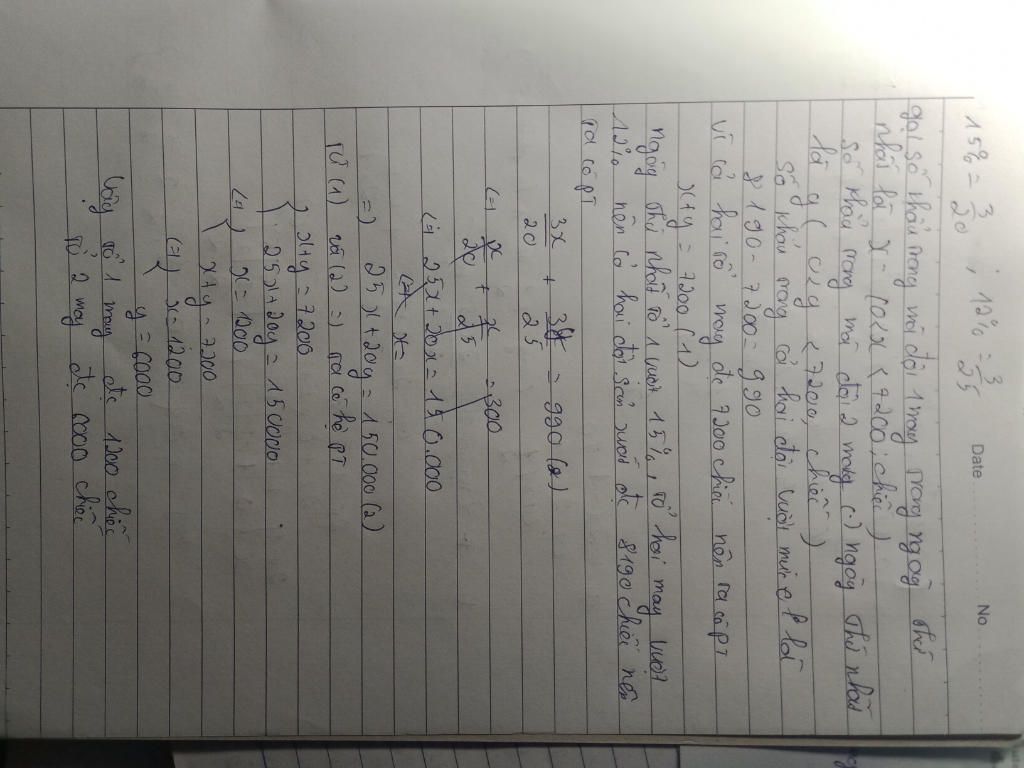 Date No.
15% = 3/20 ; 12% = 3/25
gọi số khẩu trang mà đội 1 may trong ngày thứ
nhất là x (0<x < 7200; chiếc)
số khẩu trang mà đội 2 may trong ngày thứ nhất
là y ( 0<y < 7200, chiếc )
Số khẩu trang cả hai đội vượt mức là
8190 - 7200 = 990
Vì cả hai tổ may đc 7200 chiếc nên ta có pt
x+y = 7200 (1)
ngày thứ nhất tổ 1 vượt 15%, tổ hai may vượt
12% nên cả hai đội sản xuất đc 8190 chiếc nên
ta có pt
3x/20 + 3y/25 = 990 (2)
(=) x/20 + x/25 = 300
(=) 25x + 20x = 150.000
(=) x =
=) 25x + 20y = 150.000 (2)
Từ (1) và (2) =) ta có hệ pt
{ x+y = 7200
25x+20y = 150000
(=) { x = 1200
x+y = 7200
(=) { x = 1200
y = 6000
Vậy tổ 1 may đc 1200 chiếc
tổ 2 may đc 6000 chiếc